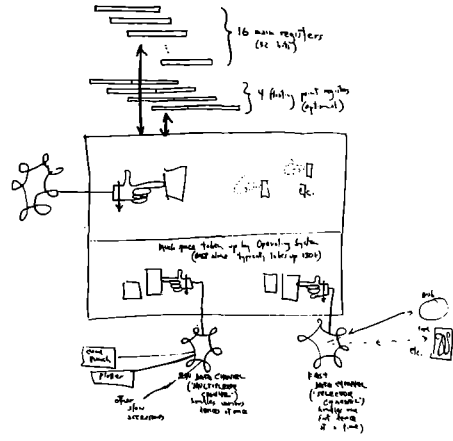 16 main registers
(32 bits)
4 floating point registers
(optional)
etc.
Much space taken up by Operating System
card
punch
plotter
other
slow
accessories
DATA CHANNEL
("MULTIPLEXOR
CHANNEL")
handles various
devices at once
FAST
DATA CHANNEL
("SELECTOR
CHANNEL")
handles one
fast device
at a time)
disk
etc.